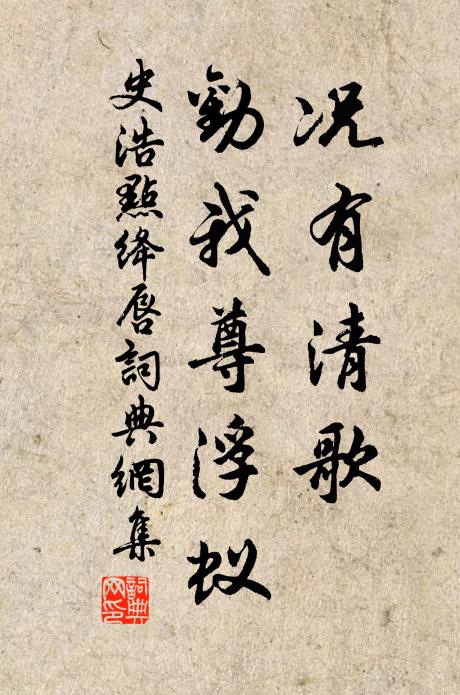 况有清歌
勸我尊浮蚁
史浩點絳唇詞典網集
詞典网印